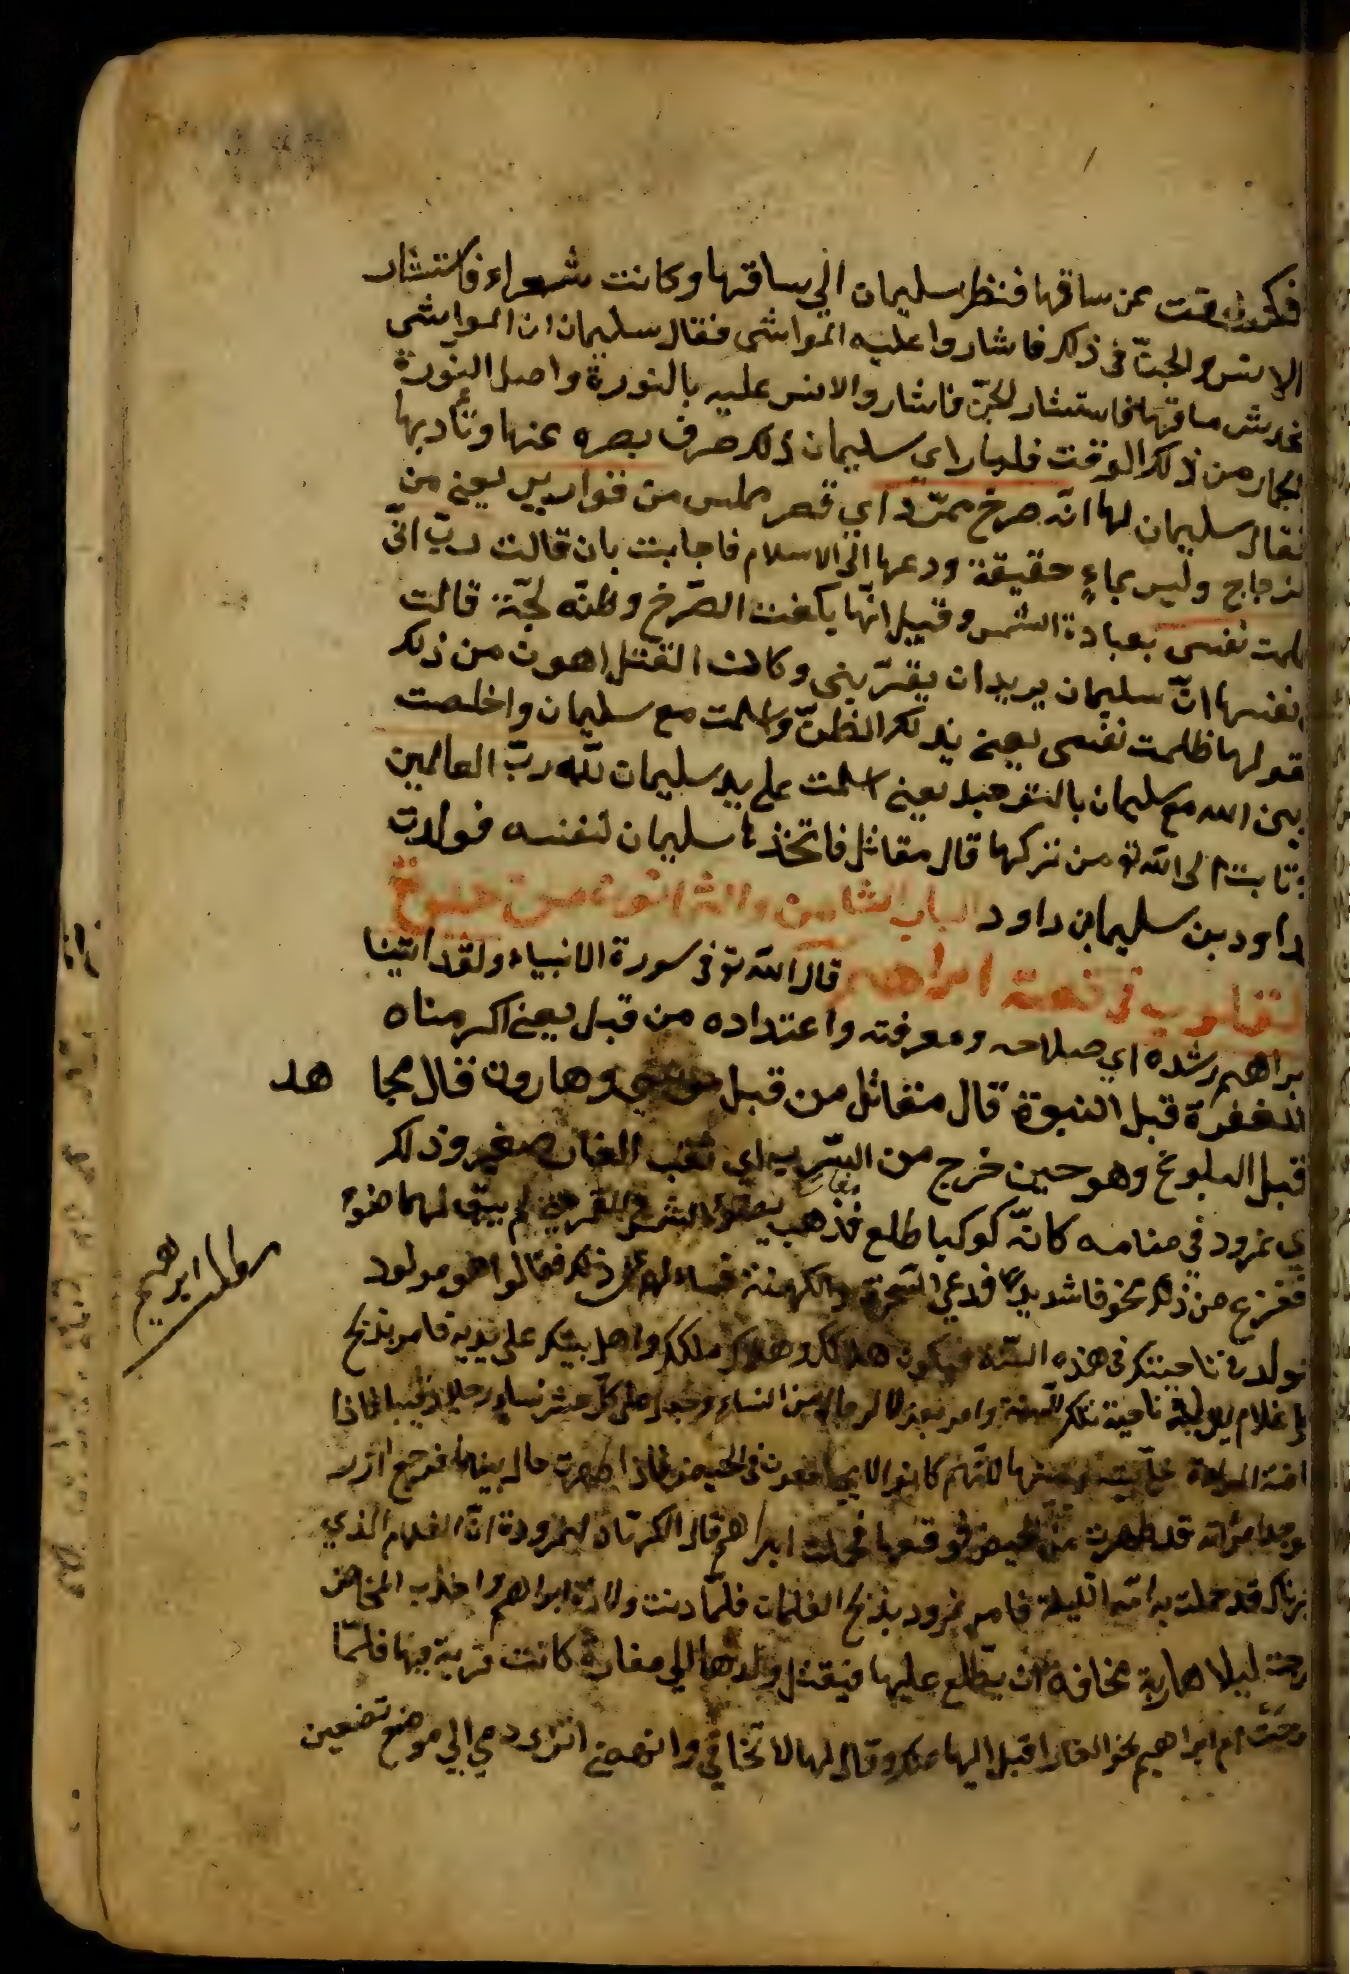 عن ساقها فنظر سليمان الي ساقها وكانت شعراء فاستشار
الانس والجنّ في ذلك فاشاروا عليه المواشي فقال سليمان ان المواشي
تخدش ساقها فاستشار الجنّ فاشاروا عليه بالنورة واصل النورة
من ذلك الوقت فلما راي سليمان ذلك صرف بصره عنها وناديها
فقال سليمان لها انّه صرح ممرّد اي قصر مملس من قوارير يعني من
لزجاج وليس بماءٍ حقيقة ودعها الي الاسلام فاجابت بان قالت ربّ انّي
ظلمت نفسي بعبادة الشمس وقيل انّها بلغت الصّرح وظنّه لجّة قالت
نفسها انّ سليمان يريد ان يغرّقني وكانت القتل اهون من ذلك
قولها ظلمت نفسي يعني بذلك الظنّ واسلمت مع سليمان واخلصت
الله مع سليمان بالتوحيد يعني اسلمت علي يد سليمان للّه ربّ العالمين
تابت الي اللّه تو من شركها قال مقاتل فاتخذها سليمان لنفسه فولدت
داود بن سليمان بن داود الباب الثامن والثمانون من حيوة
لقلوب في قصة ابراهيم قال اللّه تو في سورة الانبياء ولقد اتينا
براهيم رشده اي صلاحه ومعرفته واعتداده من قبل يعني اكرمناه
قبل النبوة قال مقاتل من قبل موسي وهارون قال مجا هد
قبل البلوغ وهو حين خرج من السّرب اي ثقب الغار صغير وذلك
نمرود في منامه كانّه كوكبا طلع فذهب بضوء الشمس والقمر حتي لم يبق لهما ضوء
ففزع من ذلك خوفا شديدا فدعي السّحرة والكهنة فسالهم عن ذلك فقالوا هو مولود
يولد في ناحيتك في هذه السّنة فيكون هلاكك وهلاك ملكك واهل بيتك علي يديه فامر بذبح
غلام يولد في ناحية تلك السّنة وامر بعزل الرجال من النساء وجعل علي كلّ عشر نساءٍ رجلا رقيبا فاذا
المراة خلّي بينه وبينها لانّهم كانوا لا يجامعون في الحيض فاذا طهرت حال بينهما فرجع ازر
فوجد امراته قد طهرت من الحيض فوقعها فحملت ابراهيم قال الكهان لنمرودة انّ الغلام الذي
قد حملت به امّه الليلة فامر نمرود بذبح الغلمان فلمّا دنت ولادة ابراهيم واخذت المخاض
خرجت ليلا هاربة مخافة ان يطّلع عليها فيقتل ولدها الي مغارة كانت قريبة منها فلمّا
ام ابراهيم نحو الغار اقبل اليها ملك وقال لها لا تخافي وانهضي الي موضع تضعين
ابراهيم